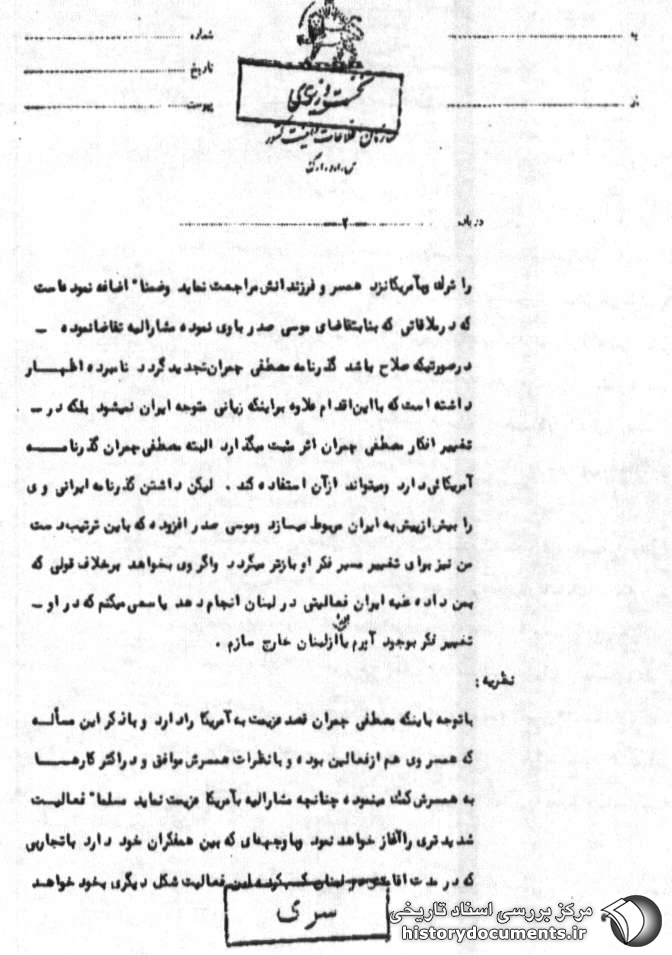 به
شماره
تاریخ
از
پیوست
نخست وزیری
سازمان اطلاعات و امنیت کشور
س.ا.و.ا.ک
درباره
- ۲ -
را ترک وبآمریکا نزد همسر و فرزندانش مراجعت نماید وضمنا" اضافه نموده است
که درملاقاتی که بنابتقاضای موسی صدر باوی نموده مشارالیه تقاضانموده –
درصورتیکه صلاح باشد گذرنامه مصطفی چمران تجدید گردد نامبرده اظهـــار
داشته است که بااین اقدام علاوه براینکه زیانی متوجه ایران نمیشود بلکه در –
تغییر افکار مصطفی چمران اثر مثبت میگذارد البته مصطفی چمران گذرنامـــه
آمریکائی دارد ومیتواند ازآن استفاده کند . لیکن داشتن گذرنامه ایرانی وی
را بیش ازپیش به ایران مربوط میسازد وموسی صدر افزوده که باین ترتیب دست
من نیز برای تغییر مسیر فکر او بازتر میگردد واگر وی بخواهد برخلاف قولی که
بمن داده علیه ایران فعالیتی در لبنان انجام دهد یا سعی میکنم که در او –
تغییر فکر بوجود آورم یا ازلبنان خارج سازم .
نظریه :
باتوجه باینکه مصطفی چمران قصد عزیمت به آمریکا رادارد و باذکر این مسألـه
که همسر وی هم ازفعالین بوده و بانظرات همسرش موافق و دراکثر کارهـــا
به همسرش کمک مینموده چنانچه مشارالیه بآمریکا عزیمت نماید مسلما" فعالیت
شدیدتری راآغاز خواهد نمود وباوجهه‌ای که بین همفکران خود دارد باتجاربی
که در مدت اقامتش در لبنان کسب کرده این فعالیت شکل دیگری بخود خواهد
سری
مرکز بررسی اسناد تاریخی
historydocuments.ir